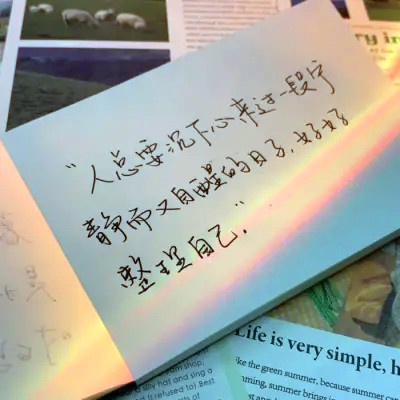 "人总要沉下心来过一段宁
静而又自醒的日子,好好
整理自己."
ry in
Life is very simple, h
ke the green summer, because summer
ming, summer brings
shop,
silly hat and sing a
I refused to) Best